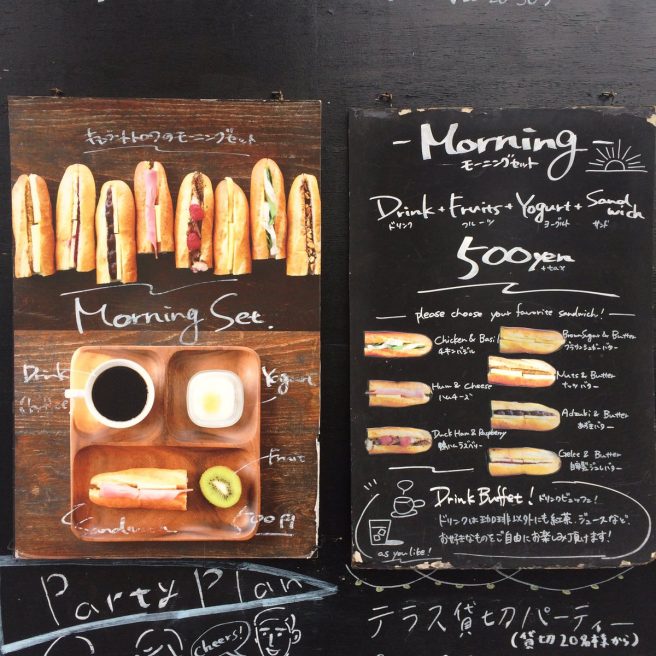 モーニングセット
Morning Set.
Drink
Coffee
Yogurt
Fruit
Sandwich
500円
- Morning -
モーニングセット
Drink + Fruits + Yogurt + Sandwich
ドリンク フルーツ ヨーグルト サンド
500yen
+tax
please choose your favorite sandwich!
Chicken & Basil
チキンバジル
Ham & Cheese
ハムチーズ
Duck Ham & Raspberry
鴨ハムラズベリー
Brown Sugar & Butter
ブラウンシュガーバター
Nuts & Butter
ナッツバター
Adzuki & Butter
あずきバター
Gelee & Butter
自家製ジュレバター
Drink Buffet! ドリンクビュッフェ!
ドリンクは珈琲以外にも紅茶、ジュースなど、
お好きなものをご自由にお楽しみ頂けます!
as you like!
Party Plan
cheers!
テラス貸切パーティー
(貸切20名様から)